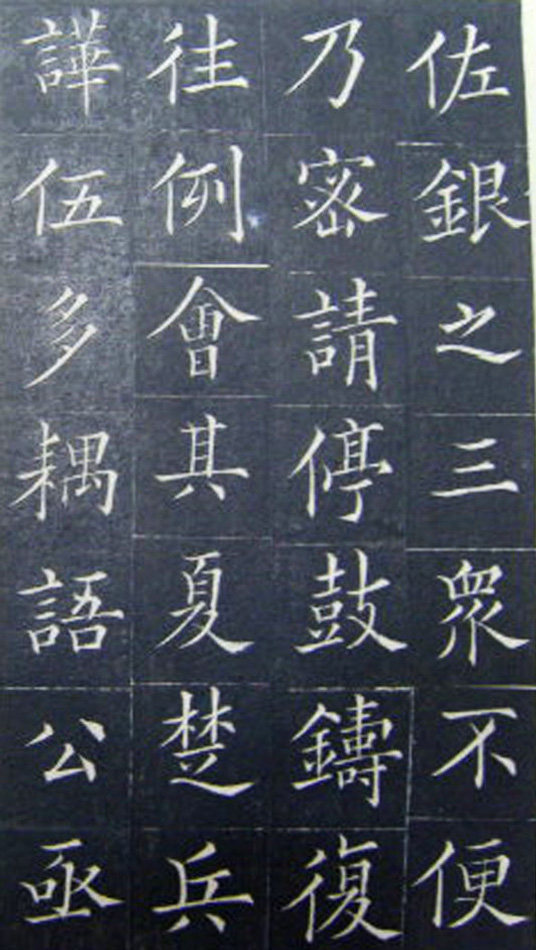 佐銀之三眾不便
乃密請停鼓鑄復
往例會其夏楚兵
譁伍多耦語公亟